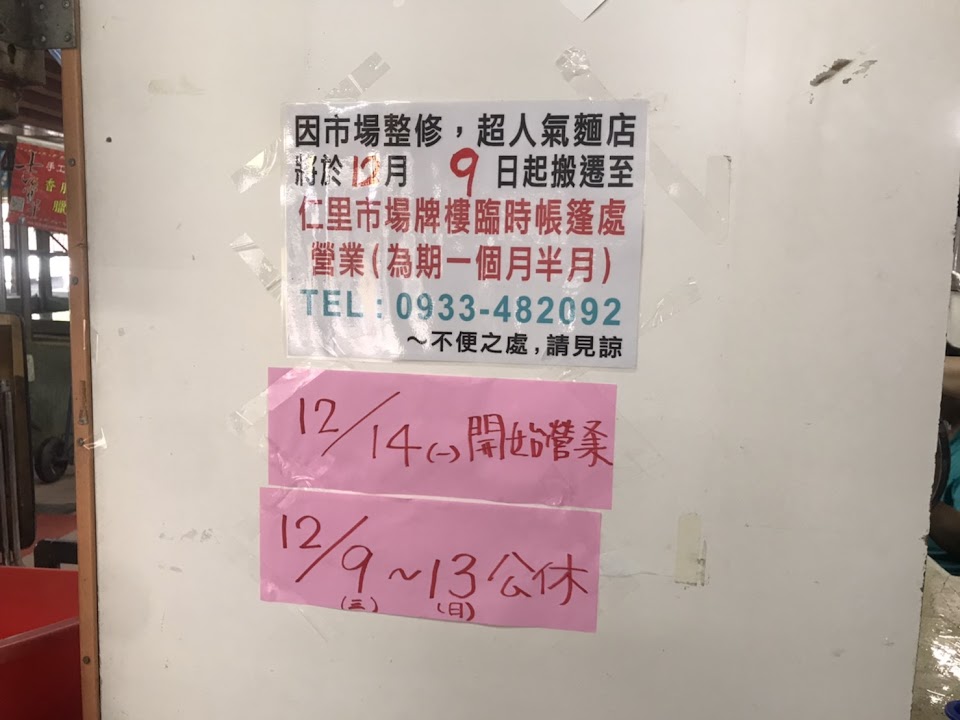 因市場整修，超人氣麵店
將於12月 9 日起搬遷至
仁里市場牌樓臨時帳篷處
營業(為期一個月半月)
TEL：0933-482092
～不便之處，請見諒
12/14(一)開始營業
12/9～13公休
(三) (日)
手工
香腸